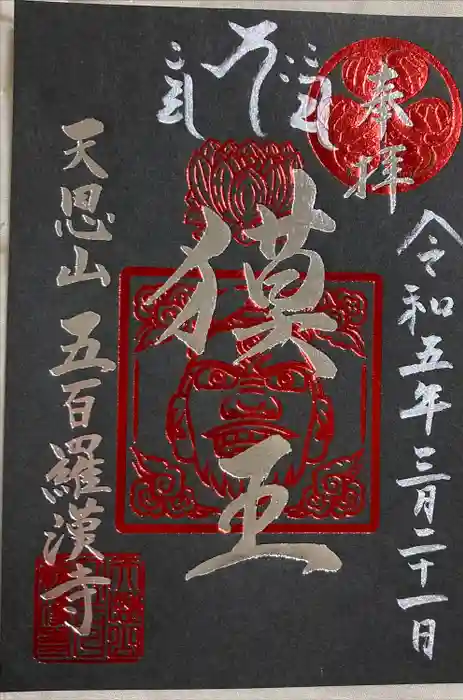 奉拝
令和五年三月二十一日
獏王
天恩山 五百羅漢寺